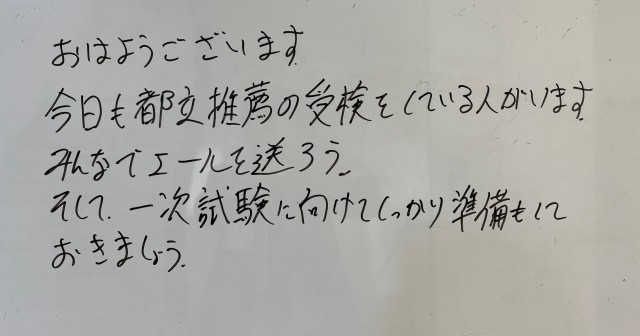 おはようございます
今日も都立推薦の受検をしている人がいます
みんなでエールを送ろう。
そして、一次試験に向けてしっかり準備もして
おきましょう。